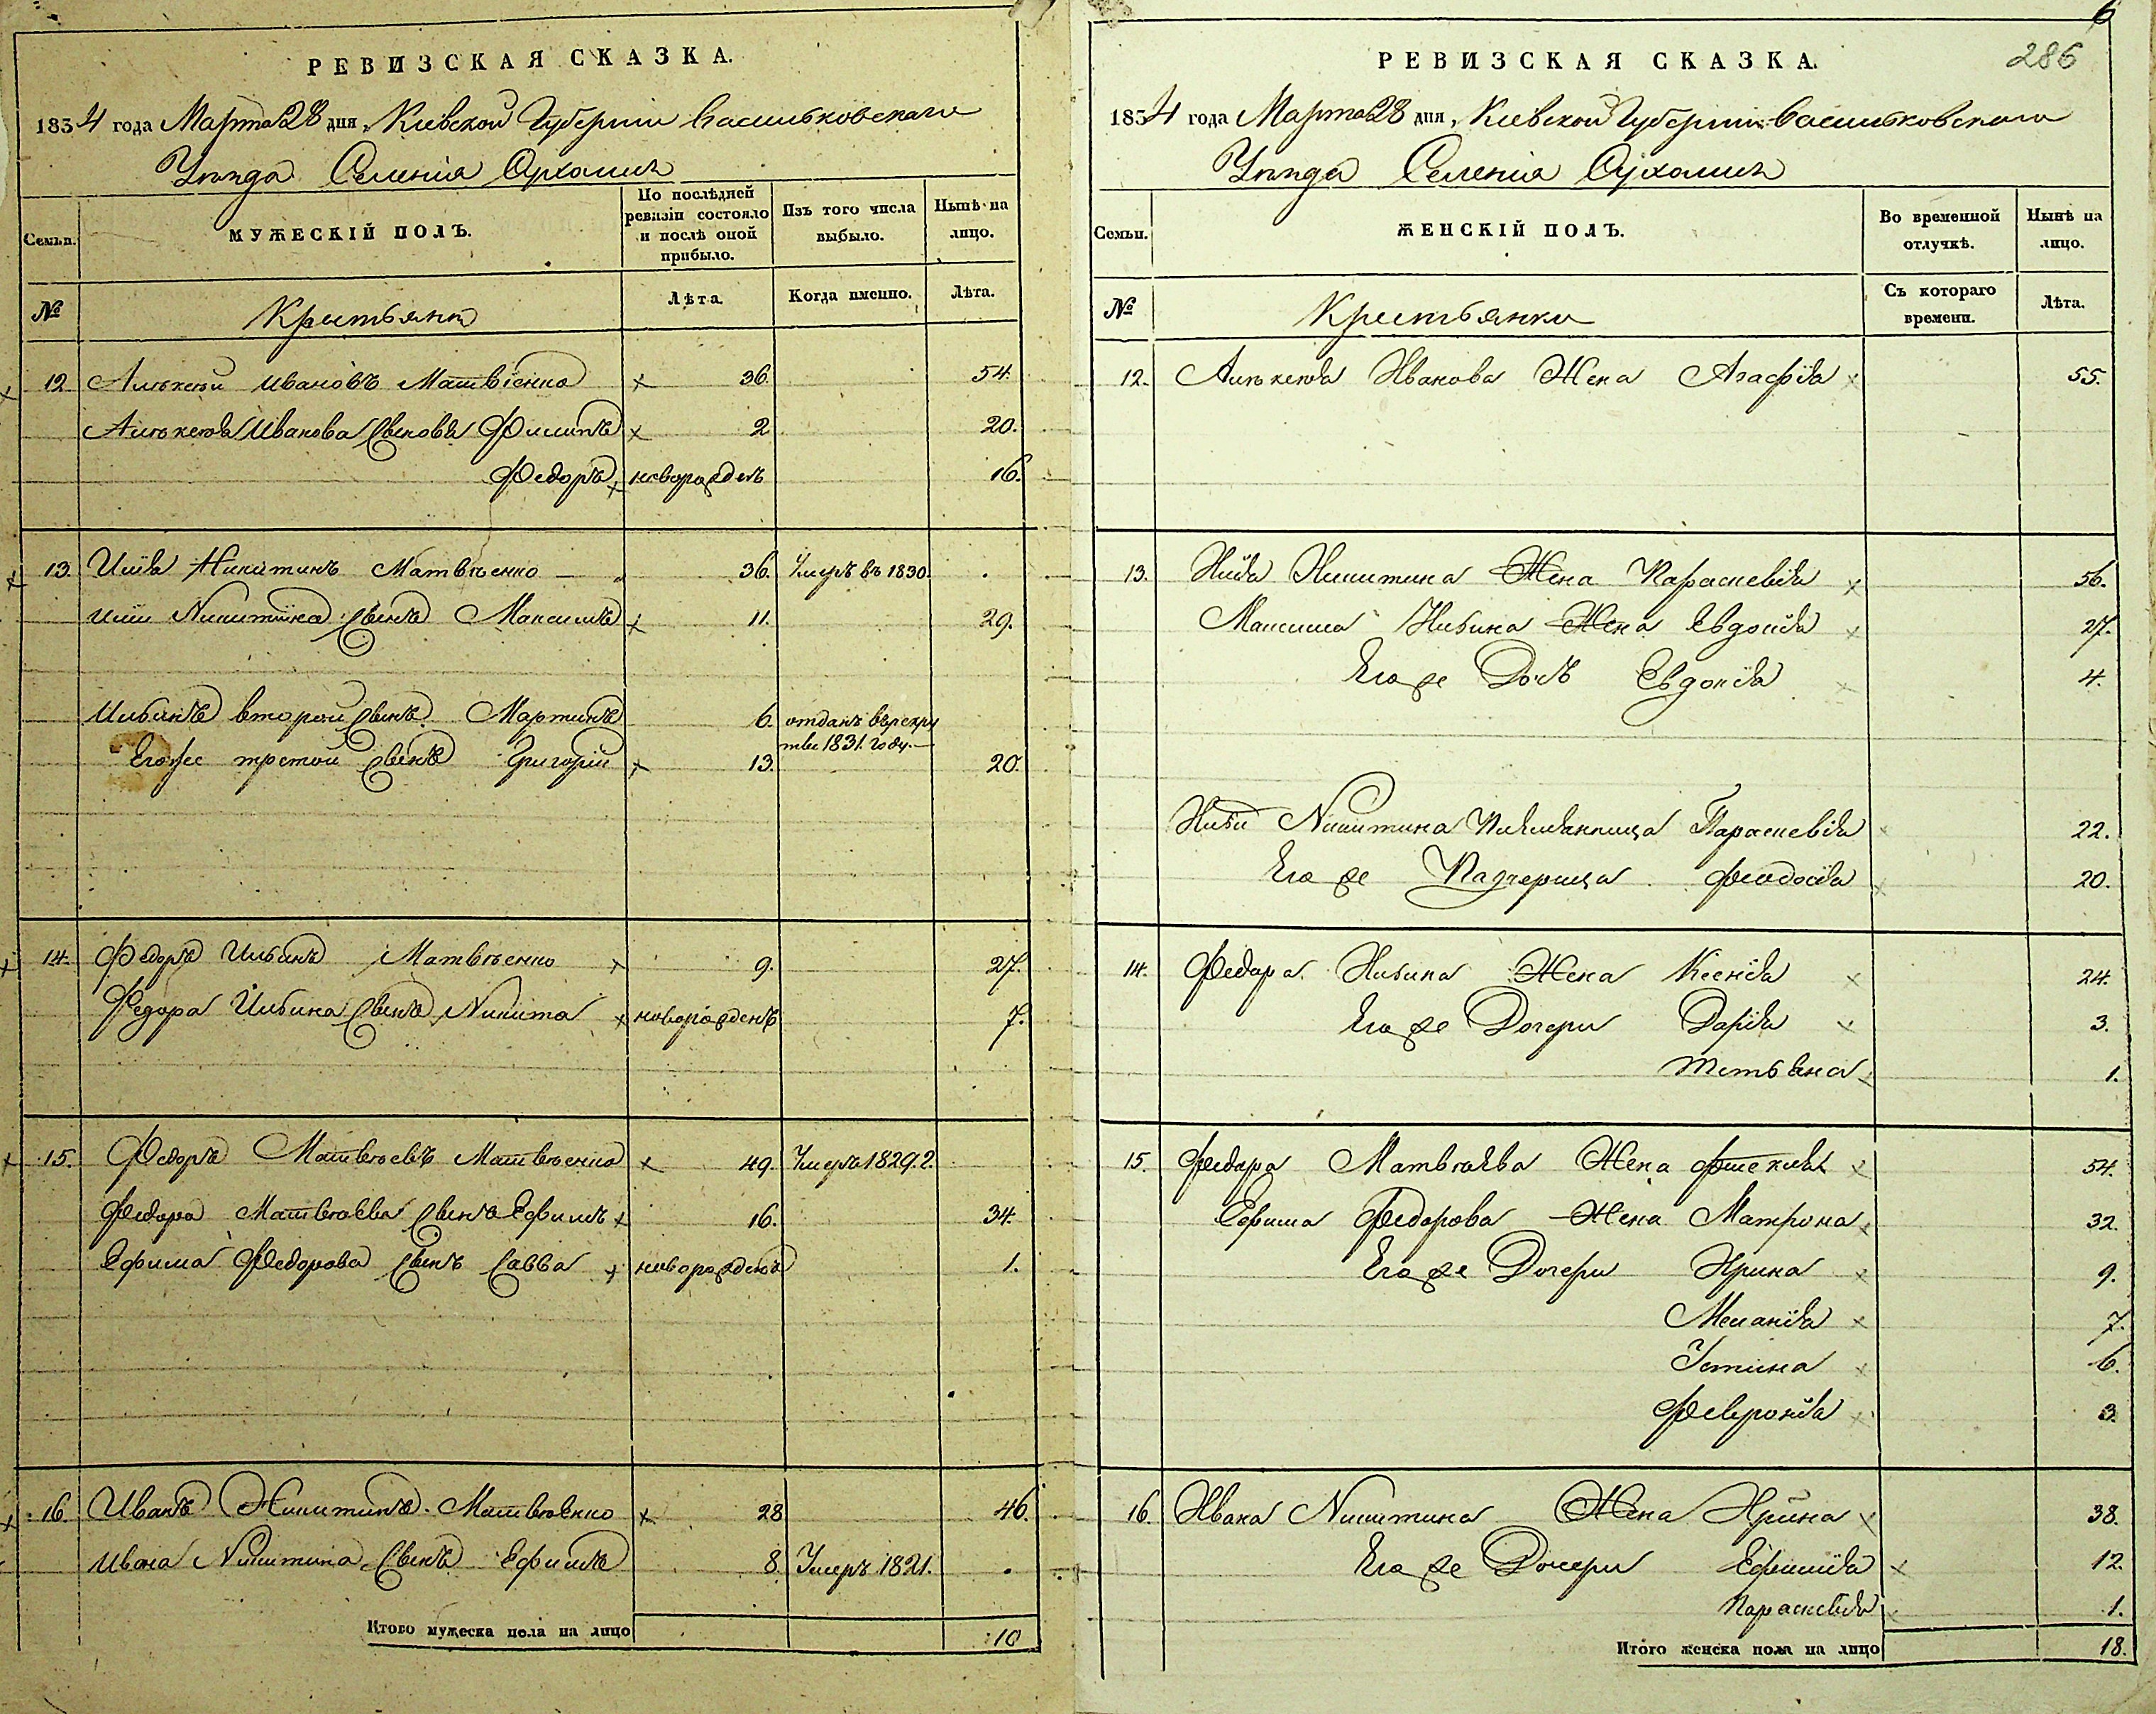 РЕВИЗСКАЯ СКАЗКА.
1834 года Марта 28 дня, Кіевской Губерніи Васильковскаго
Уѣзда Селенія
Семьи.
МУЖЕСКІЙ ПОЛЪ.
По послѣдней ревизіи состояло и послѣ оной прибыло.
Изъ того числа выбыло.
Нынѣ на лицо.
№
Крестьяне
Лѣта.
Когда именно.
Лѣта.
12 Алѣксѣй Ивановъ Матвіенко 36. 54.
Алѣксѣя Иванова Сыновья Филипъ 2 20.
Федоръ новорожденъ 16.
13. Илія Никитинъ Матвѣенко — 36. Умеръ въ 1830. .
Иліи Никитина Сынъ Максимъ 11. 29.
Ильинъ второй Сынъ Мартинъ 6. отданъ въ рекру
тве 1831. году.—
Егоже третій Сынъ Григорій 13. 20.
14. Федоръ Ильинъ Матвѣенко 9. 27.
Федора Ильина Сынъ Никита новорожденъ 7.
15. Федоръ Матвѣевъ Матвѣенко 49. Умеръ 1829. г.
Федора Матвѣева Сынъ Ефимъ 16. 34.
Ефима Федорова Сынъ Савва новорожденъ 1.
16. Иванъ Никитинъ Матвѣенко 28 46.
Ивана Никитина Сынъ Ефимъ 8. Умеръ 1821. .
Итого мужеска пола на лицо 10
6
286
РЕВИЗСКАЯ СКАЗКА.
1834 года Марта 28 дня, Кіевской Губерніи Васильковскаго
Уѣзда Селенія
Семьи.
ЖЕНСКІЙ ПОЛЪ.
Во временной отлучкѣ.
Нынѣ на лицо.
№
Крестьянки
Съ котораго времени.
Лѣта.
12. Алѣксѣя Иванова Жена Агафія 55.
13. Илія Никитина Жена Параскевія 56.
Максима Ильина Жена Евдокія 27.
Его же Дочь Евдокія 4.
Никитина Параскевія 22.
Его же Падчерица Феодосія 20.
14. Федора Ильина Жена Ксенія 24.
Его же Дочери Дарія 3.
Тетьяна 1.
15. Федора Матвѣева Жена 54.
Ефима Федорова Жена Матрона 32.
Его же Дочери Ирина 9.
Меланія 7.
Устина 6.
Февронія 3.
16. Ивана Никитина Жена Ирина 38.
Его же Дочери Ефимія 12.
Параскевія 1.
Итого женска пола на лицо 18.